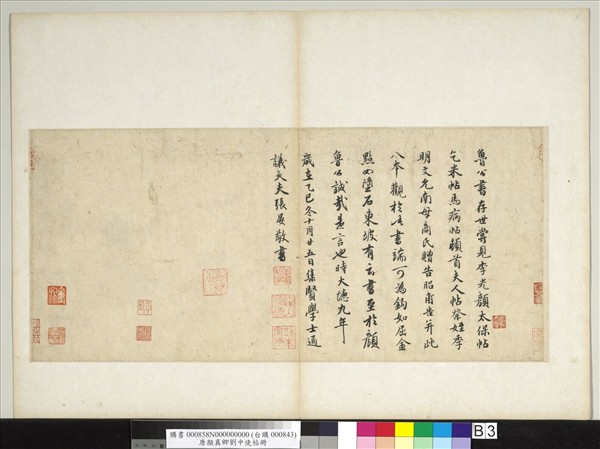 魯公書存世嘗見李光顏太保帖
乞米帖馬病帖頓首夫人帖祭姪季
明文允南母商氏贈告昭甫告并此
八本觀於此書端可為鈎如屈金
點如墮石東坡有云書至於顏
魯公誠哉是言也時大德九年
歲在乙巳冬十月廿五日集賢學士通
議大夫張晏敬書
購書 000858N000000000 (台購 000843)
唐顏真卿劉中使帖冊
B 3